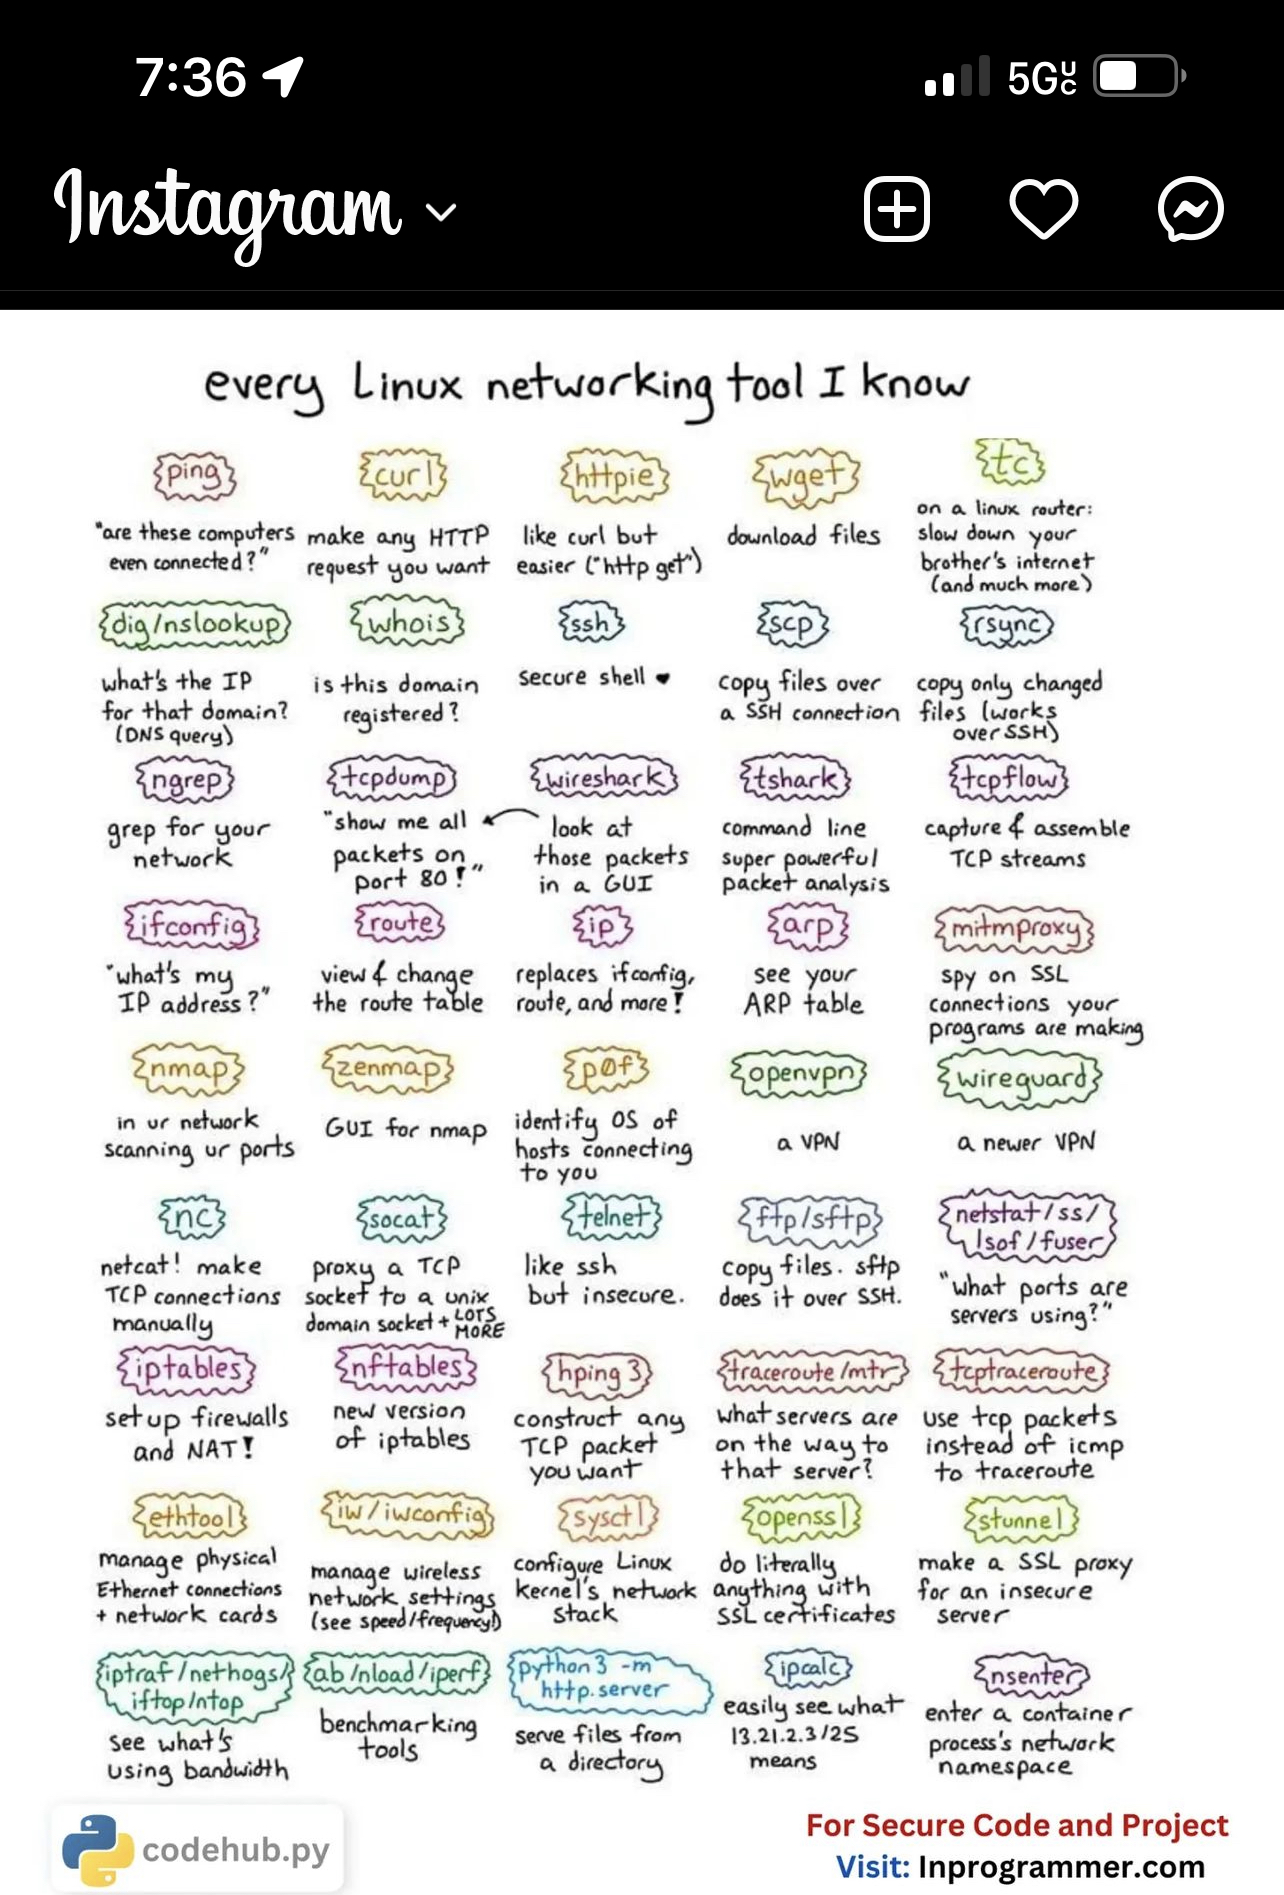 7:36
5GUC
Instagram
every Linux networking tool I know
ping
"are these computers
even connected?"
curl
make any HTTP
request you want
httpie
like curl but
easier ("http get")
wget
download files
tc
on a linux router:
slow down your
brother's internet
(and much more)
dig/nslookup
what's the IP
for that domain?
(DNS query)
whois
is this domain
registered?
ssh
secure shell ♥
scp
copy files over
a SSH connection
rsync
copy only changed
files (works
over SSH)
ngrep
grep for your
network
tcpdump
"show me all
packets on
port 80!"
wireshark
look at
those packets
in a GUI
tshark
command line
super powerful
packet analysis
tcpflow
capture & assemble
TCP streams
ifconfig
"what's my
IP address?"
route
view & change
the route table
ip
replaces ifconfig,
route, and more!
arp
see your
ARP table
mitmproxy
spy on SSL
connections your
programs are making
nmap
in ur network
scanning ur ports
zenmap
GUI for nmap
p0f
identify OS of
hosts connecting
to you
openvpn
a VPN
wireguard
a newer VPN
nc
netcat! make
TCP connections
manually
socat
proxy a TCP
socket to a unix
domain socket + LOTS
MORE
telnet
like ssh
but insecure.
ftp/sftp
copy files. sftp
does it over SSH.
netstat/ss/
lsof/fuser
"what ports are
servers using?"
iptables
set up firewalls
and NAT!
nftables
new version
of iptables
hping3
construct any
TCP packet
you want
traceroute/mtr
what servers are
on the way to
that server?
tcptraceroute
use tcp packets
instead of icmp
to traceroute
ethtool
manage physical
Ethernet connections
+ network cards
iw/iwconfig
manage wireless
network settings
(see speed/frequency!)
sysctl
configure Linux
kernel's network
stack
openssl
do literally
anything with
SSL certificates
stunnel
make a SSL proxy
for an insecure
server
iptraf/nethogs/
iftop/ntop
see what's
using bandwidth
ab/nload/iperf
benchmarking
tools
python3 -m
http.server
serve files from
a directory
ipcalc
easily see what
13.21.2.3/25
means
nsenter
enter a container
process's network
namespace
codehub.py
For Secure Code and Project
Visit: Inprogrammer.com